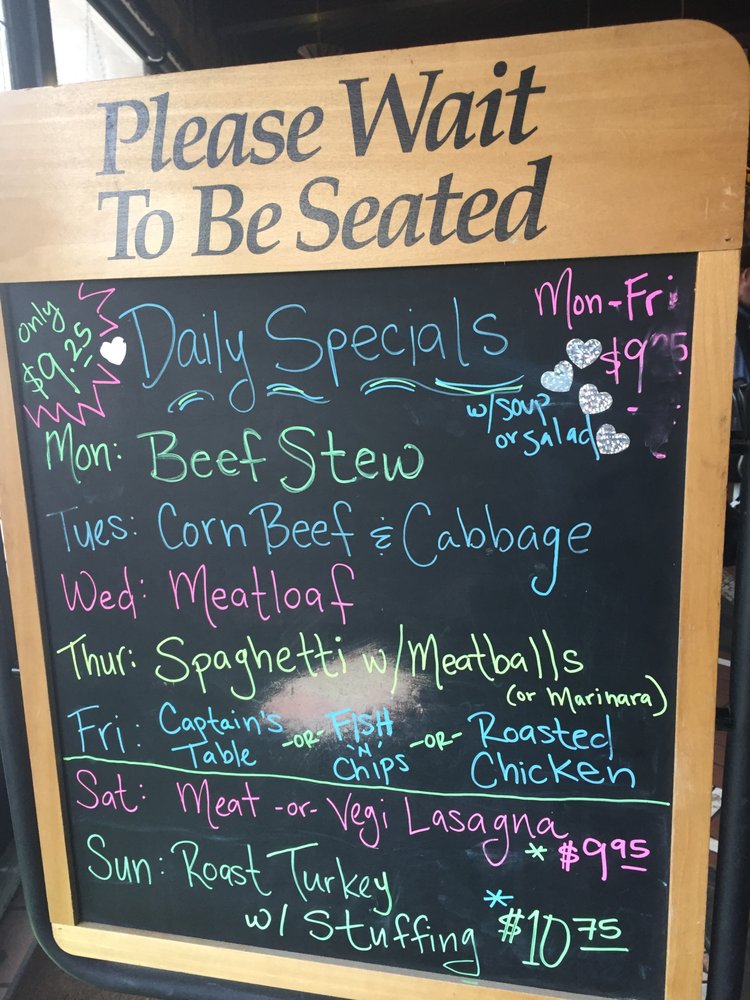 Please Wait
To Be Seated
only
$9.25
Daily Specials
Mon-Fri
w/soup
or salad
Mon: Beef Stew
Tues: Corn Beef & Cabbage
Wed: Meatloaf
Thur: Spaghetti w/Meatballs
(or Marinara)
Fri: Captain's Table -OR- FISH 'N' Chips -OR- Roasted Chicken
Sat: Meat -or- Vegi Lasagna
* $9.95
Sun: Roast Turkey
w/ Stuffing
* $10.75